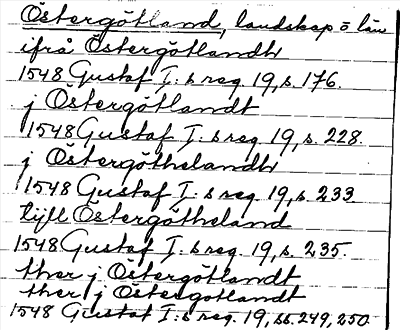 Östergötland, landskap o län
ifrå Östergötlandh
1548 Gustaf I:s reg. 19, s. 176.
j Östergötlandt
1548 Gustaf I:s reg. 19, s. 228.
j Östergöthelandh
1548 Gustaf I:s reg. 19, s. 233
tijll Östergötheland
1548 Gustaf I:s reg. 19, s. 235.
ther j Östergötlandt
ther j Östergotlandt
1548 Gustaf I:s reg. 19, ss. 249, 250.